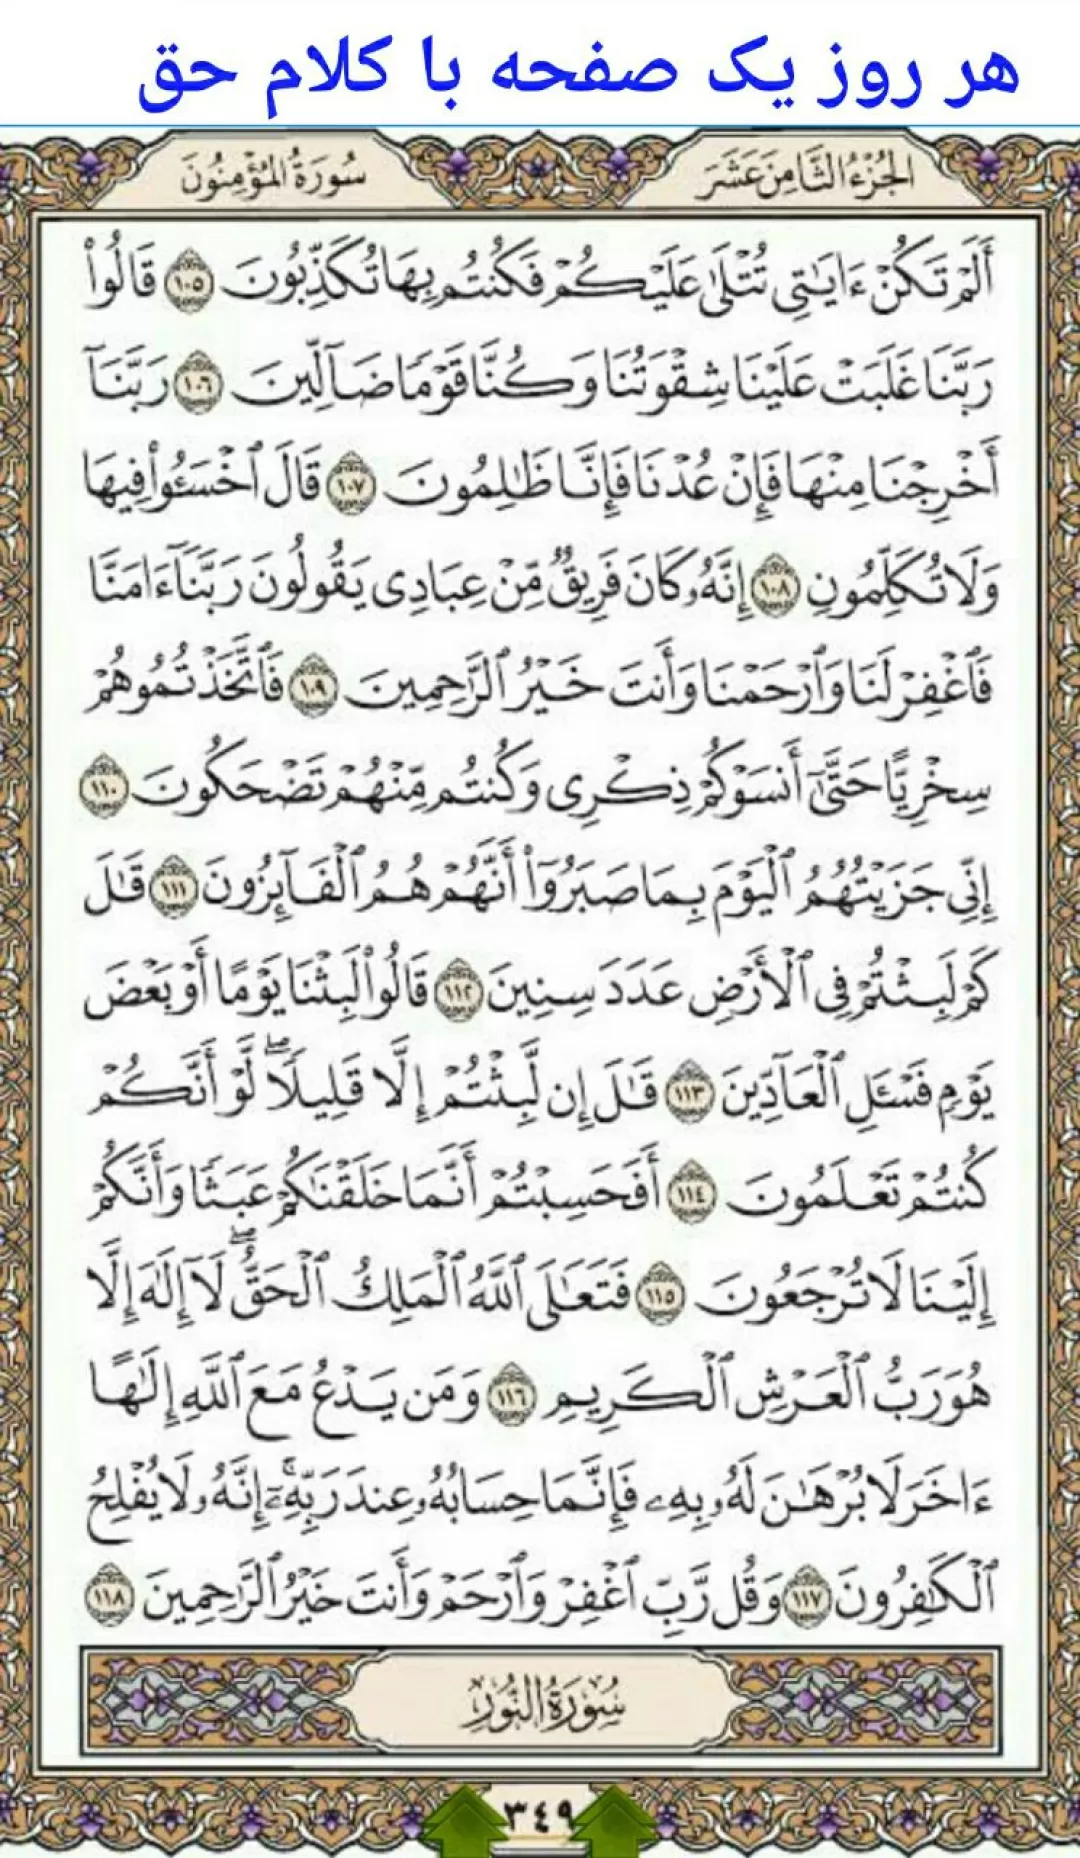 هر روز یک صفحه با کلام حق
الجُزْءُ الثَّامِنَ عَشَرَ
سُورَةُ المُؤْمِنُونَ
أَلَمْ تَكُنْ ءَايَٰتِى تُتْلَىٰ عَلَيْكُمْ فَكُنتُم بِهَا تُكَذِّبُونَ ١٠٥ قَالُوا۟
رَبَّنَا غَلَبَتْ عَلَيْنَا شِقْوَتُنَا وَكُنَّا قَوْمًا ضَآلِّينَ ١٠٦ رَبَّنَآ
أَخْرِجْنَا مِنْهَا فَإِنْ عُدْنَا فَإِنَّا ظَٰلِمُونَ ١٠٧ قَالَ ٱخْسَـُٔوا۟ فِيهَا
وَلَا تُكَلِّمُونِ ١٠٨ إِنَّهُۥ كَانَ فَرِيقٌ مِّنْ عِبَادِى يَقُولُونَ رَبَّنَآ ءَامَنَّا
فَٱغْفِرْ لَنَا وَٱرْحَمْنَا وَأَنتَ خَيْرُ ٱلرَّٰحِمِينَ ١٠٩ فَٱتَّخَذْتُمُوهُمْ
سِخْرِيًّا حَتَّىٰٓ أَنسَوْكُمْ ذِكْرِى وَكُنتُم مِّنْهُمْ تَضْحَكُونَ ١١٠
إِنِّى جَزَيْتُهُمُ ٱلْيَوْمَ بِمَا صَبَرُوٓا۟ أَنَّهُمْ هُمُ ٱلْفَآئِزُونَ ١١١ قَٰلَ
كَمْ لَبِثْتُمْ فِى ٱلْأَرْضِ عَدَدَ سِنِينَ ١١٢ قَالُوا۟ لَبِثْنَا يَوْمًا أَوْ بَعْضَ
يَوْمٍ فَسْـَٔلِ ٱلْعَآدِّينَ ١١٣ قَٰلَ إِن لَّبِثْتُمْ إِلَّا قَلِيلًا ۖ لَّوْ أَنَّكُمْ
كُنتُمْ تَعْلَمُونَ ١١٤ أَفَحَسِبْتُمْ أَنَّمَا خَلَقْنَٰكُمْ عَبَثًا وَأَنَّكُمْ
إِلَيْنَا لَا تُرْجَعُونَ ١١٥ فَتَعَٰلَى ٱللَّهُ ٱلْمَلِكُ ٱلْحَقُّ ۖ لَآ إِلَٰهَ إِلَّا
هُوَ رَبُّ ٱلْعَرْشِ ٱلْكَرِيمِ ١١٦ وَمَن يَدْعُ مَعَ ٱللَّهِ إِلَٰهًا
ءَاخَرَ لَا بُرْهَٰنَ لَهُۥ بِهِۦ فَإِنَّمَا حِسَابُهُۥ عِندَ رَبِّهِۦٓ ۚ إِنَّهُۥ لَا يُفْلِحُ
ٱلْكَٰفِرُونَ ١١٧ وَقُل رَّبِّ ٱغْفِرْ وَٱرْحَمْ وَأَنتَ خَيْرُ ٱلرَّٰحِمِينَ ١١٨
سُورَةُ النُّورِ
٣٤٩